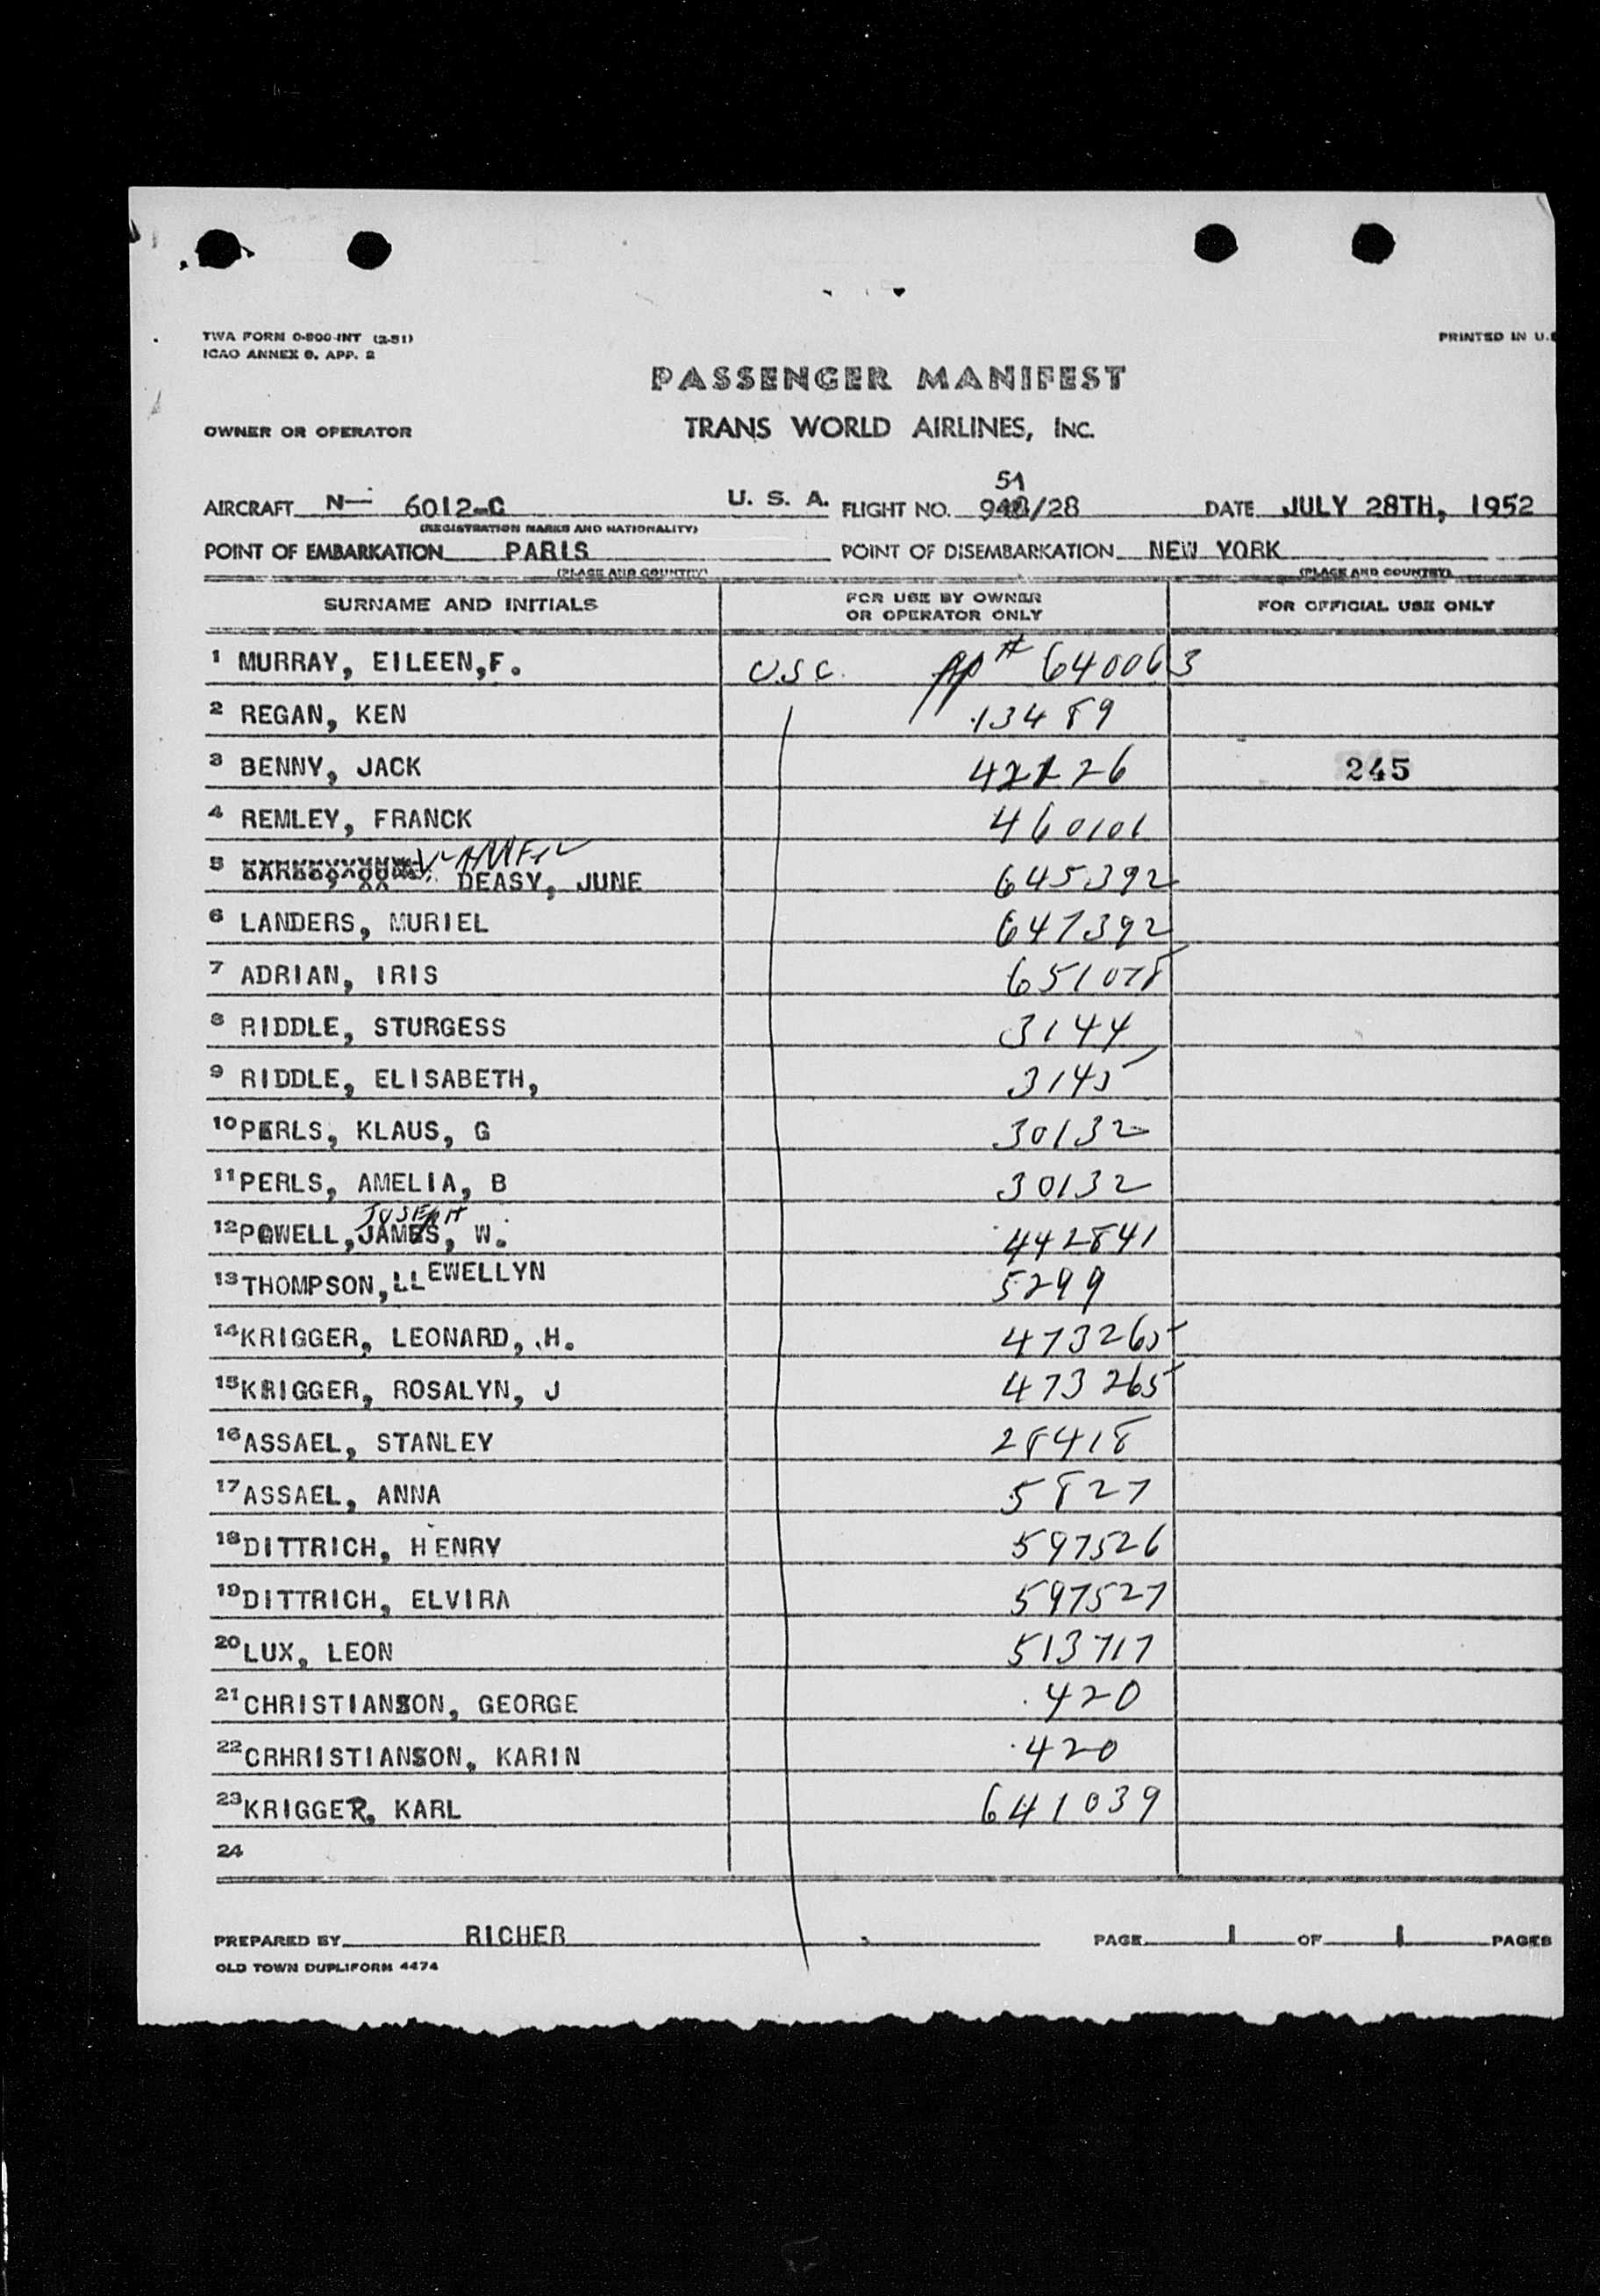 TWA FORM 0-800-INT (2-51)
ICAO ANNEX 9. APP. 2
PRINTED IN U.S
PASSENGER MANIFEST
OWNER OR OPERATOR
TRANS WORLD AIRLINES, INC.
51
AIRCRAFT N— 6012-C U. S. A. FLIGHT NO. /28 DATE JULY 28TH, 1952
(REGISTRATION MARKS AND NATIONALITY)
POINT OF EMBARKATION PARIS POINT OF DISEMBARKATION NEW YORK
(PLACE AND COUNTRY) (PLACE AND COUNTRY)
SURNAME AND INITIALS FOR USE BY OWNER OR OPERATOR ONLY FOR OFFICIAL USE ONLY
1 MURRAY, EILEEN,F. U.S.C. pp # 640063
2 REGAN, KEN 13489
3 BENNY, JACK 245
4 REMLEY, FRANCK
5 DEASY, JUNE 645392
6 LANDERS, MURIEL 647392
7 ADRIAN, IRIS 651078
8 RIDDLE, STURGESS 3144
9 RIDDLE, ELISABETH, 3145
10 PERLS, KLAUS, G 30132
11 PERLS, AMELIA, B 30132
JOSEPH
12 POWELL, JAMES, W. 442841
13 THOMPSON, LLEWELLYN 5299
14 KRIGGER, LEONARD, .H. 473265
15 KRIGGER, ROSALYN, J 473265
16 ASSAEL, STANLEY 28418
17 ASSAEL, ANNA 5827
18 DITTRICH, HENRY 597526
19 DITTRICH, ELVIRA 597527
20 LUX, LEON 513717
21 CHRISTIANSON, GEORGE 420
22 CRHRISTIANSON, KARIN 420
23 KRIGGER, KARL 641039
24
PREPARED BY RICHER PAGE 1 OF 1 PAGES
OLD TOWN DUPLIFORM 4474